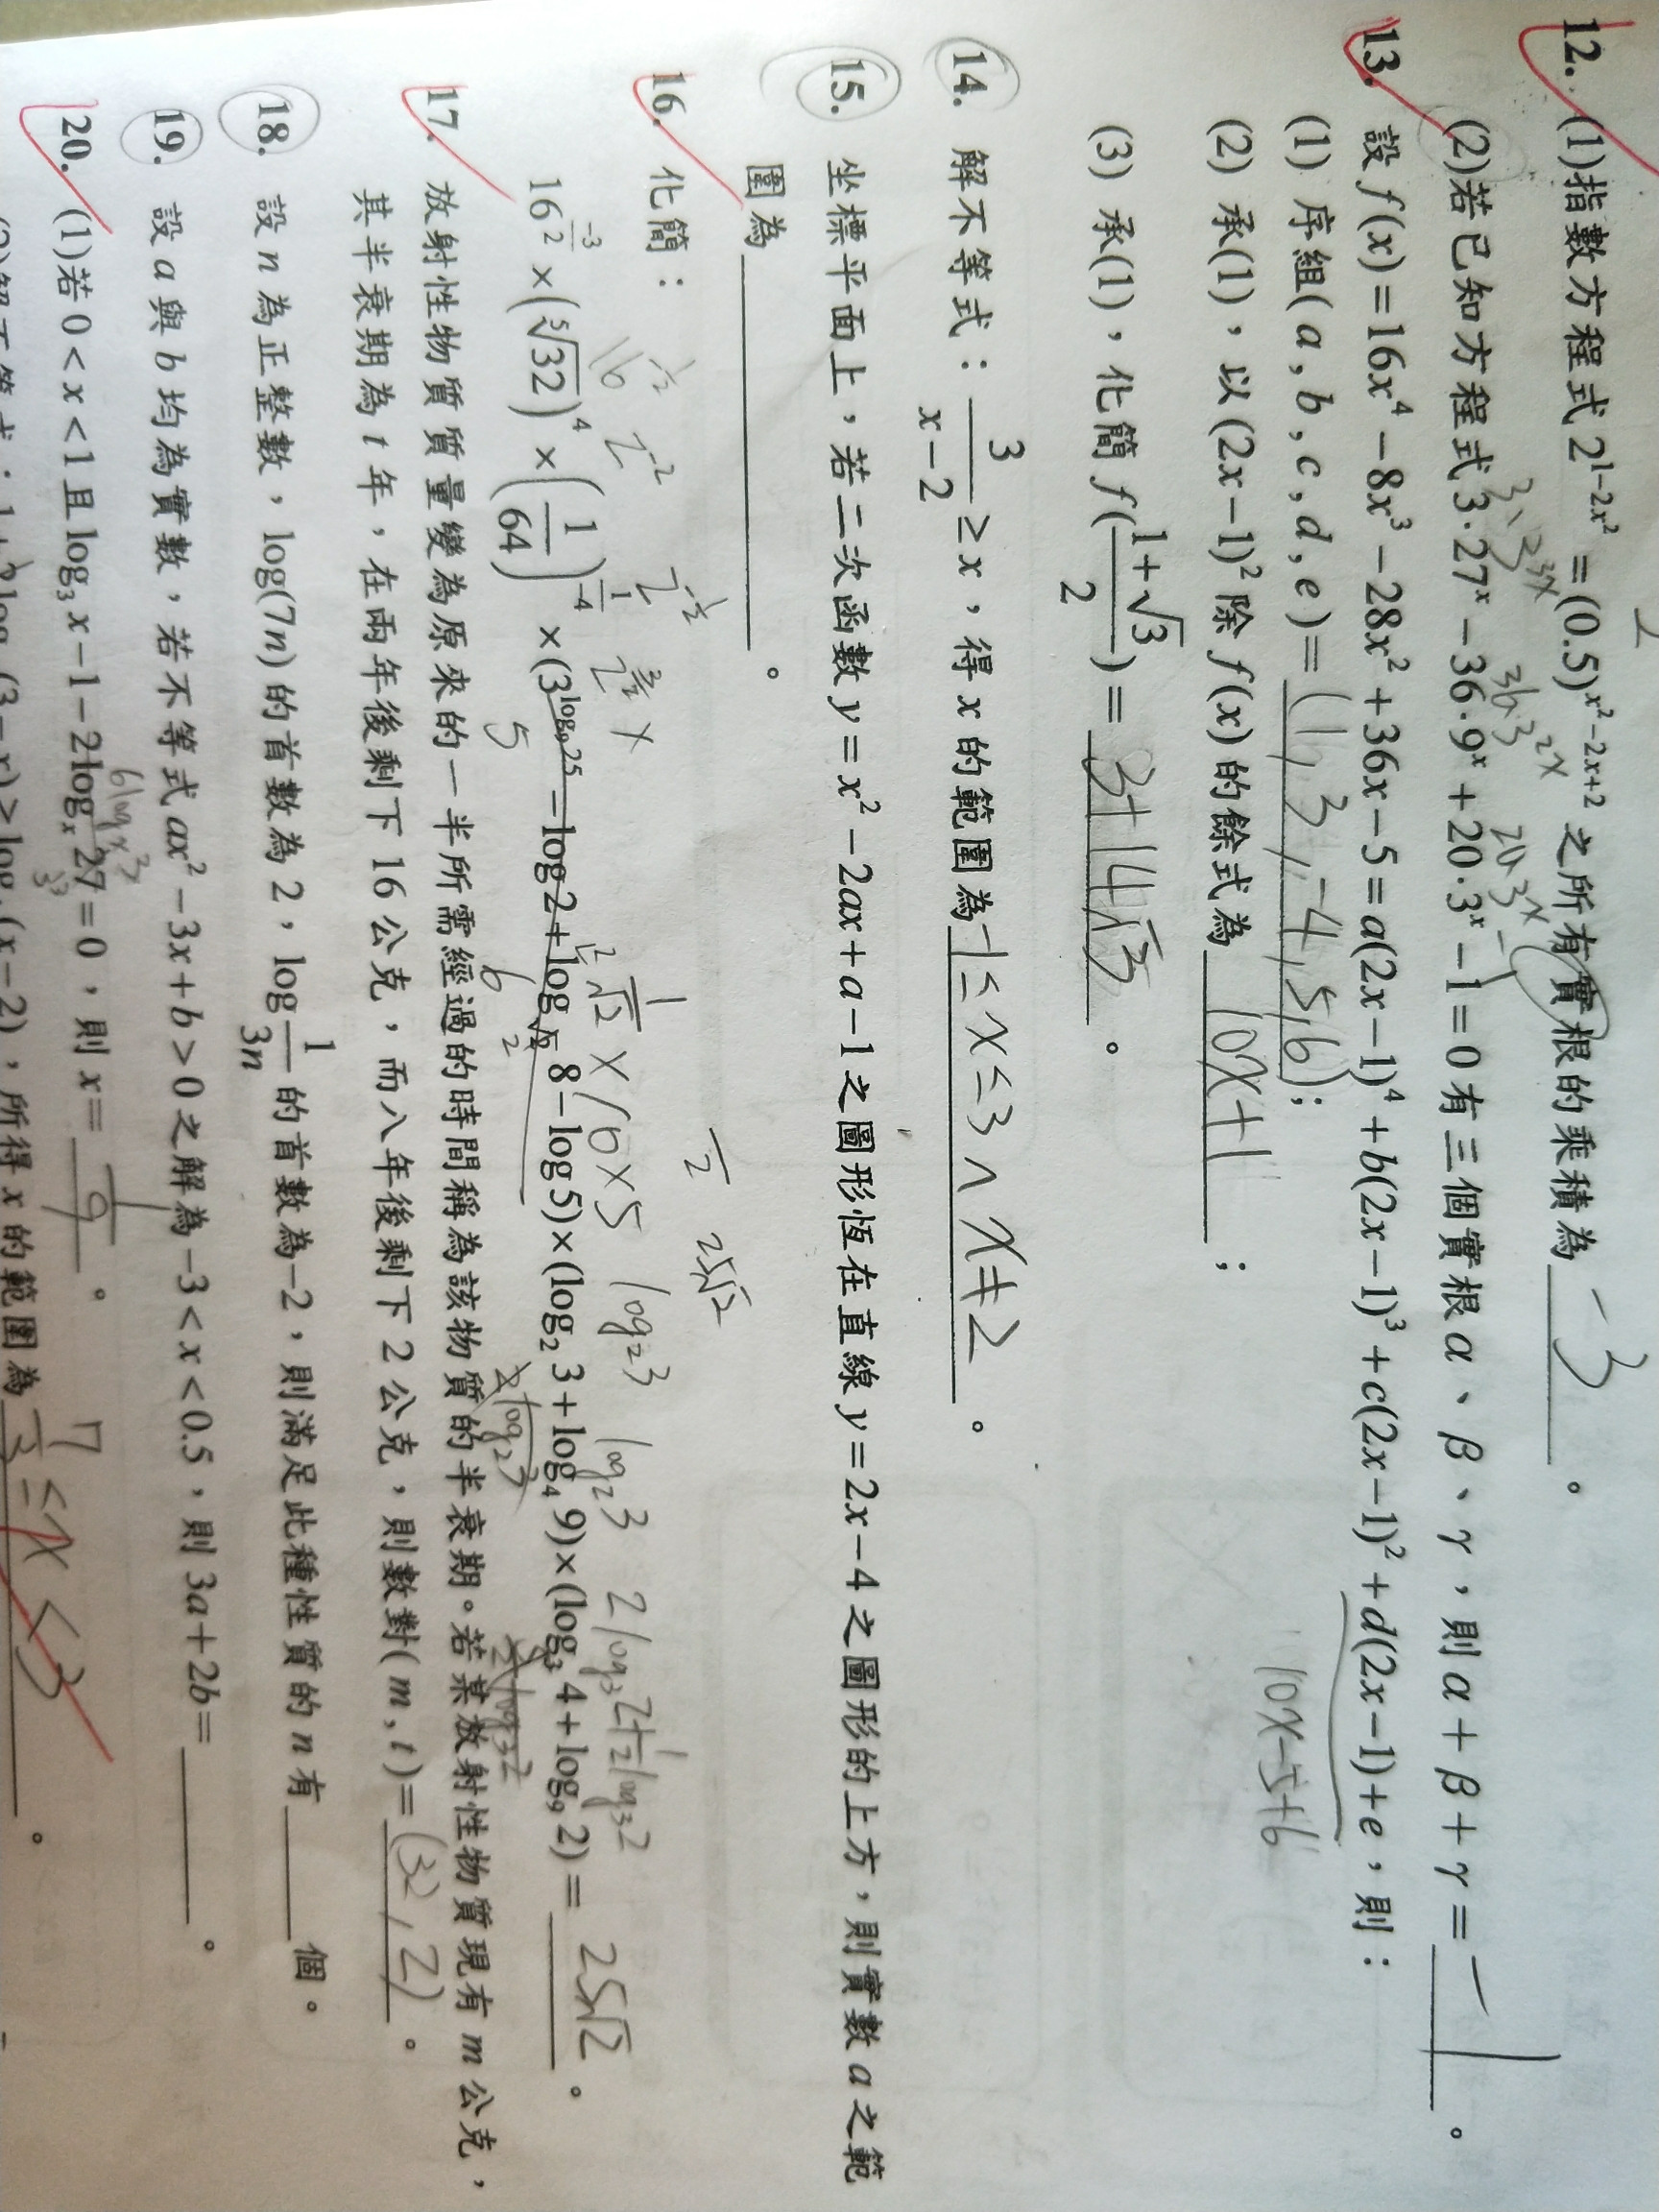 12. (1)指數方程式 2^{1-2x²} = (0.5)^{x²-2x+2} 之所有實根的乘積為 -3 。
3·3^{3x} 36·3^{2x} 20·3^x -1
(2)若已知方程式 3·27^x - 36·9^x + 20·3^x - 1 = 0 有三個實根 α、β、γ,則 α + β + γ = -1 。
13. 設 f(x) = 16x⁴ - 8x³ - 28x² + 36x - 5 = a(2x-1)⁴ + b(2x-1)³ + c(2x-1)² + d(2x-1) + e,則:
(1) 序組(a, b, c, d, e) = (1, 3, -4, 5, 6);
10x-5+6
(2) 承(1),以 (2x-1)² 除 f(x) 的餘式為 10x+1 ;
(3) 承(1),化簡 f((1+√3)/2) = 3+14√3 。
14. 解不等式:3/(x-2) ≥ x,得 x 的範圍為 -1≤x≤3 ∧ x≠2 。
15. 坐標平面上,若二次函數 y = x² - 2ax + a - 1 之圖形恆在直線 y = 2x - 4 之圖形的上方,則實數 a 之範
圍為 。
1/2 25√2
16. 化簡:
1/√2 × 16 × 5 log₂3 log₂3 2log₃2+1/2 log₃2
16^{-3/2} × (⁵√32)⁴ × (1/64)^{1/-4} × (3^{log₉25} - log2 + log_{√2}8 - log5) × (log₂3 + log₄9) × (log₃4 + log₉2) = 25√2 。
5 6
17. 放射性物質質量變為原來的一半所需經過的時間稱為該物質的半衰期。若某放射性物質現有 m 公克,
其半衰期為 t 年,在兩年後剩下 16 公克,而八年後剩下 2 公克,則數對(m, t) = (32, 2) 。
18. 設 n 為正整數,log(7n) 的首數為 2,log 1/(3n) 的首數為 -2,則滿足此種性質的 n 有 個。
19. 設 a 與 b 均為實數,若不等式 ax² - 3x + b > 0 之解為 -3 < x < 0.5,則 3a + 2b = 。
20. (1)若 0 < x < 1 且 log₃ x - 1 - 2log_x 27 = 0,則 x = 1/9 。